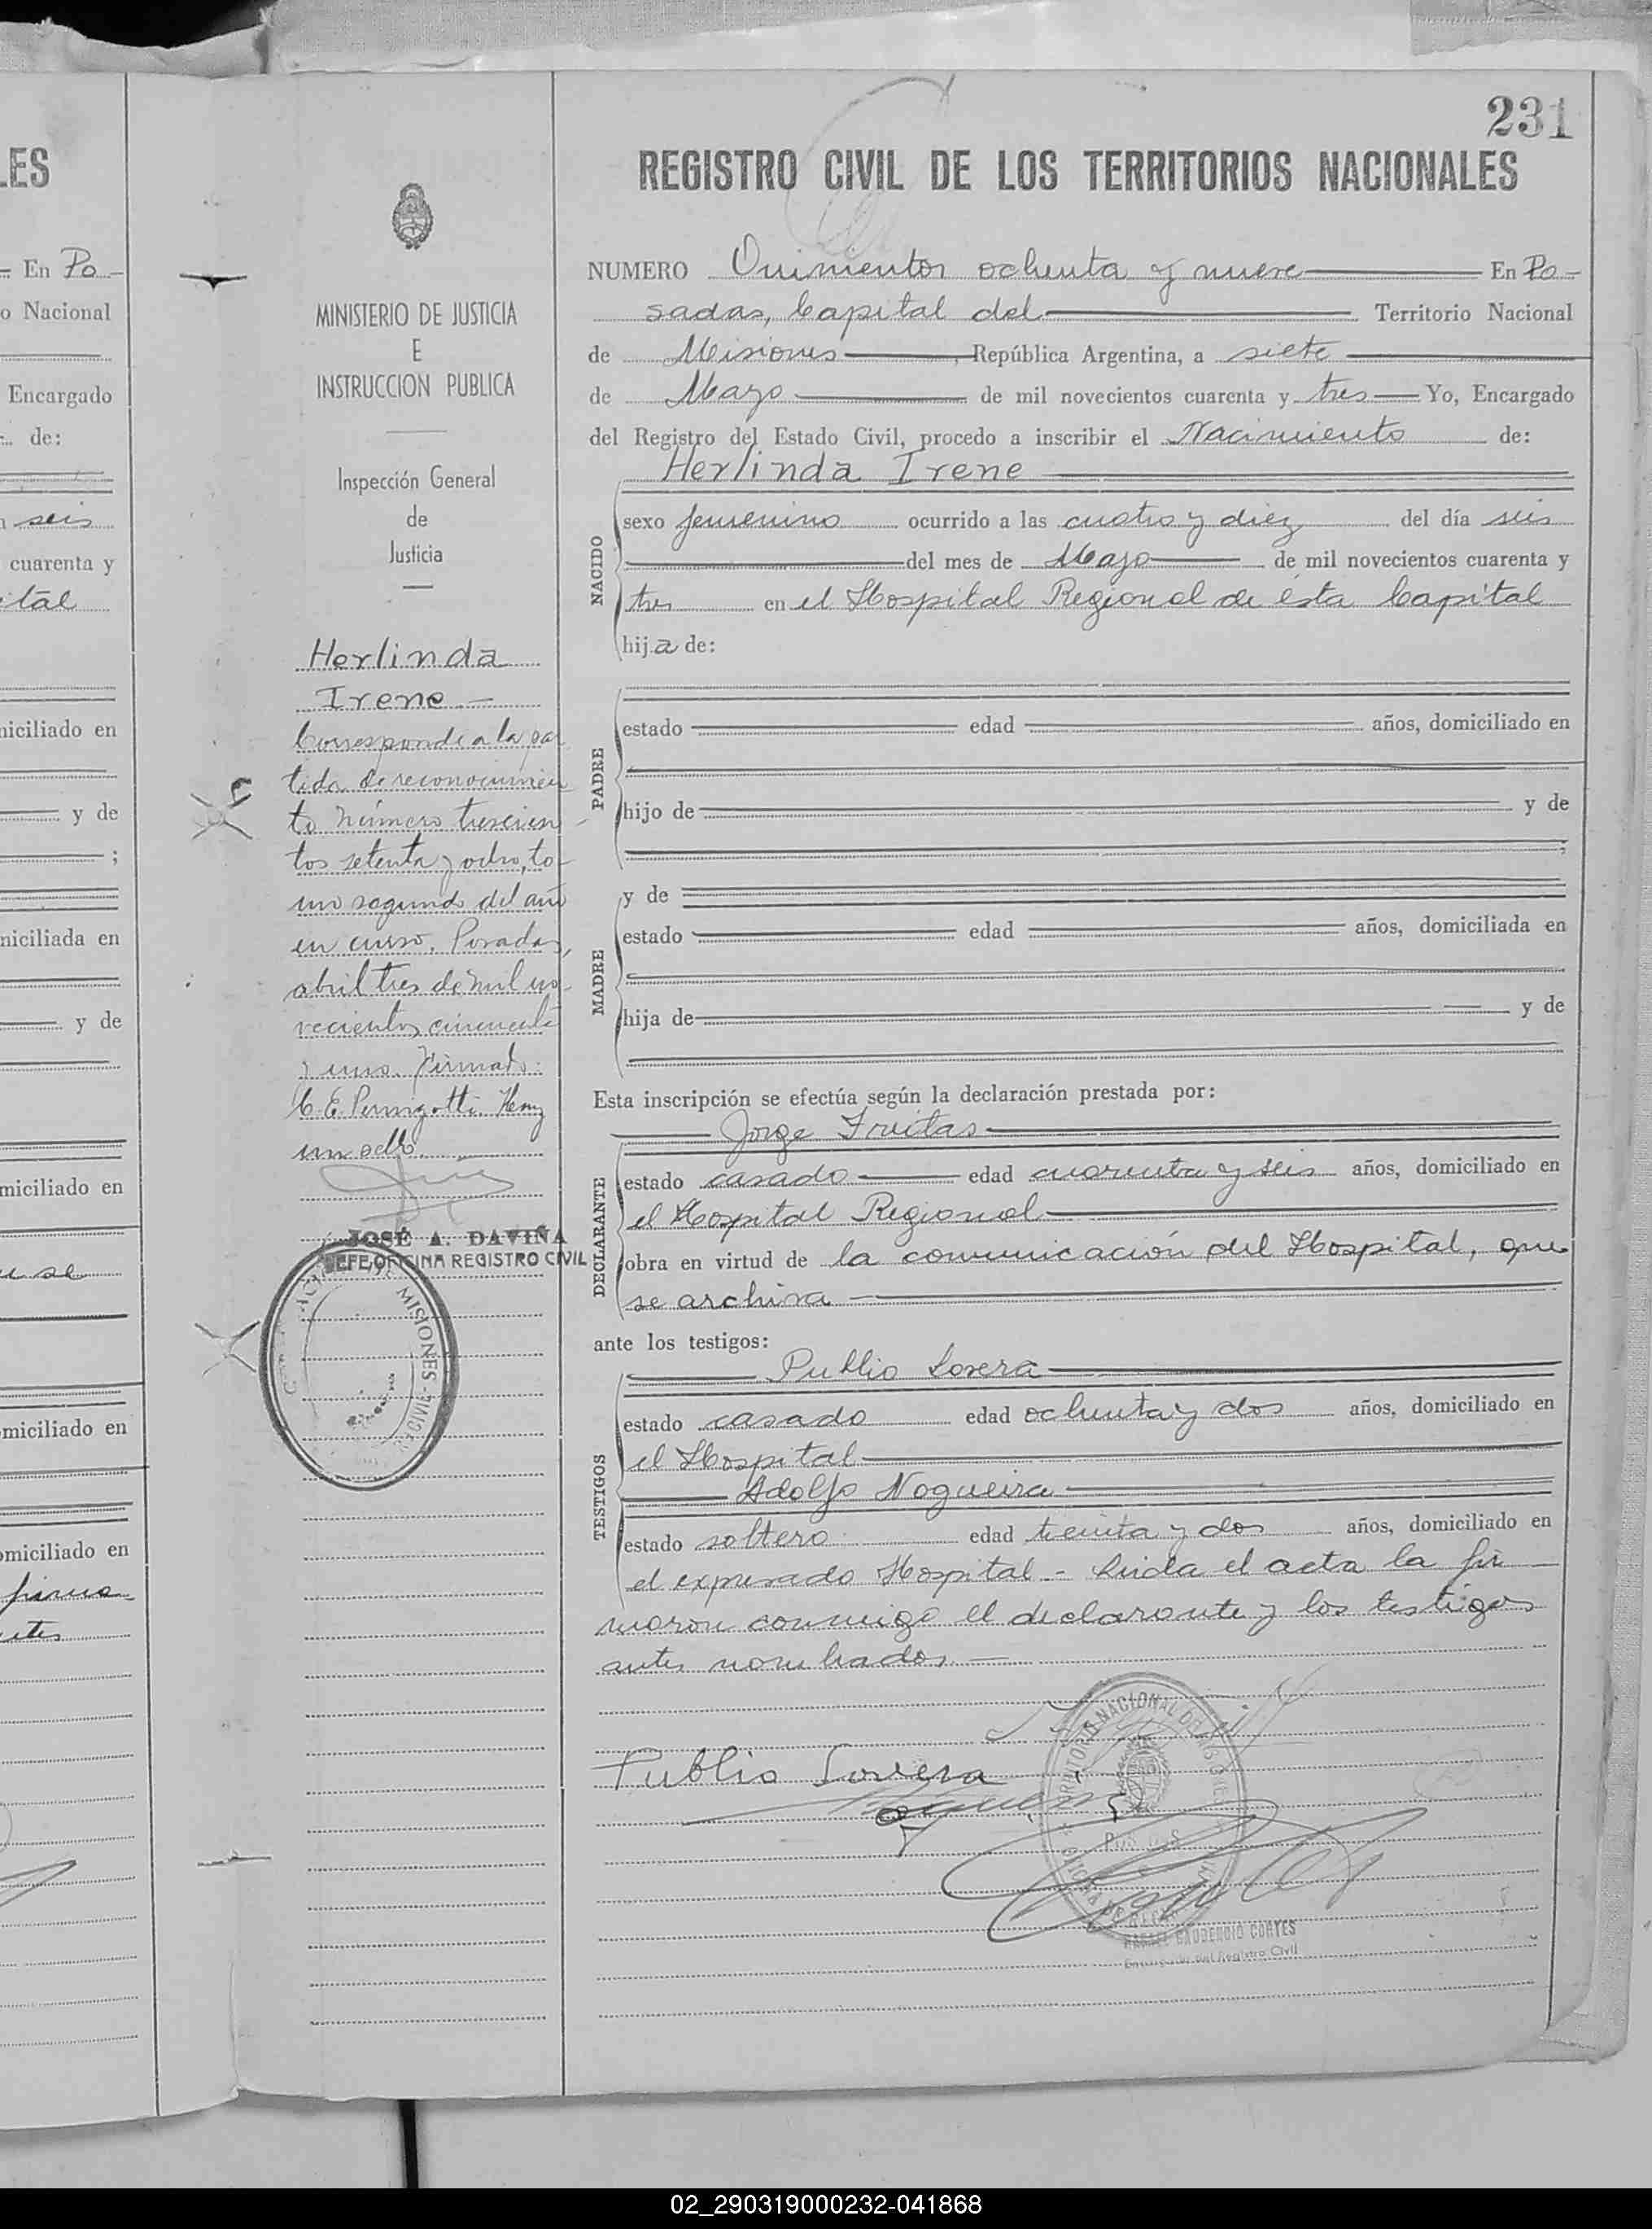 231
REGISTRO CIVIL DE LOS TERRITORIOS NACIONALES
LES
En Po-
o Nacional
Encargado
de:
seis
cuarenta y
ital
niciliado en
y de
;
niciliada en
y de
miciliado en
se
miciliado en
omiciliado en
firma
MINISTERIO DE JUSTICIA
E
INSTRUCCION PUBLICA
Inspección General
de
Justicia
Herlinda
Irene
Corresponde a la par
tida de reconocimien
to número trescien
tos setenta y ocho, to-
mo segundo del año
en curso. Posadas,
abril tres de mil no-
vecientos cincuenta
y uno. Firmado:
C. E. Hay
un sello.
JOSÉ A. DAVIÑA
JEFE OFICINA REGISTRO CIVIL
MISIONES
NUMERO Quinientos ochenta y nueve En Po-
sadas, Capital del Territorio Nacional
de Misiones, República Argentina, a siete
de Mayo de mil novecientos cuarenta y tres Yo, Encargado
del Registro del Estado Civil, procedo a inscribir el Nacimiento de:
Herlinda Irene
NACIDO
sexo femenino ocurrido a las cuatro y diez del día seis
del mes de Mayo de mil novecientos cuarenta y
tres en el Hospital Regional de ésta Capital
hija de:
PADRE
estado edad años, domiciliado en
hijo de y de
;
MADRE
y de
estado edad años, domiciliada en
hija de y de
Esta inscripción se efectúa según la declaración prestada por:
DECLARANTE
Jorge Freitas
estado casado edad cuarenta y seis años, domiciliado en
el Hospital Regional
obra en virtud de la comunicación del Hospital, que
se archiva
ante los testigos:
TESTIGOS
Publio Lovera
estado casado edad ochenta y dos años, domiciliado en
el Hospital
Adolfo Nogueira
estado soltero edad treinta y dos años, domiciliado en
el expresado Hospital - Leida el acta la fir
maron conmigo el declarante y los testigos
antes nombrados.
Publio Lovera
TERRITORIO NACIONAL DE MISIONES
RAFAEL GAUDENCIO CORTES
Encargado del Registro Civil
02_290319000232-041868